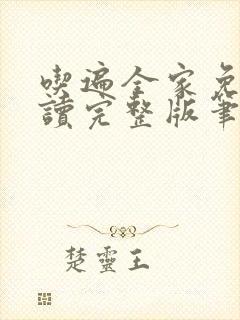 喫遍全家免
讀完整版筆
楚靈王